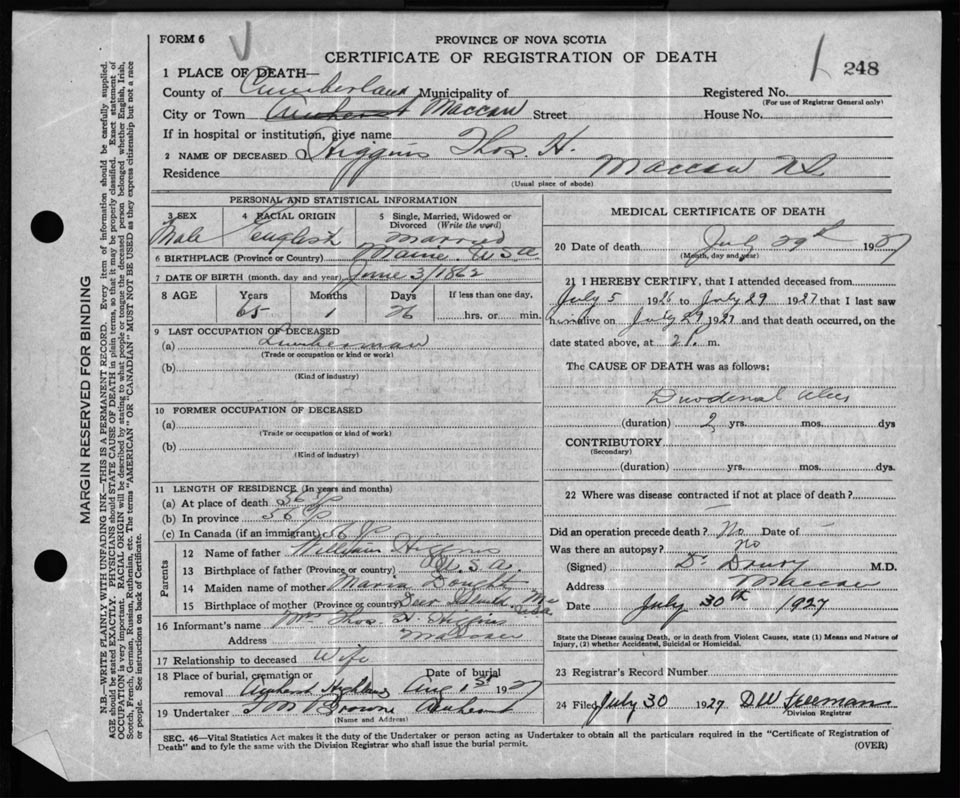 FORM 6
PROVINCE OF NOVA SCOTIA
CERTIFICATE OF REGISTRATION OF DEATH
248
1 PLACE OF DEATH—
County of Cumberland Municipality of Registered No.
(For use of Registrar General only)
City or Town Amherst Maccan Street House No.
If in hospital or institution, give name
2 NAME OF DECEASED Higgins Thos. H.
Residence Maccan N.S.
(Usual place of abode)
PERSONAL AND STATISTICAL INFORMATION
3 SEX
4 RACIAL ORIGIN
5 Single, Married, Widowed or Divorced (Write the word)
Male English Married
6 BIRTHPLACE (Province or Country) Maine. U.S.A.
7 DATE OF BIRTH (month, day and year) June 3/1862
8 AGE Years Months Days If less than one day,
65 1 26 hrs. or min.
9 LAST OCCUPATION OF DECEASED
(a) Lumberman
(Trade or occupation or kind or work)
(b)
(Kind of industry)
10 FORMER OCCUPATION OF DECEASED
(a)
(Trade or occupation or kind or work)
(b)
(Kind of industry)
11 LENGTH OF RESIDENCE (In years and months)
(a) At place of death 36
(b) In province 36
(c) In Canada (if an immigrant) 36
Parents
12 Name of father William Higgins
13 Birthplace of father (Province or country) U.S.A.
14 Maiden name of mother Maria Doughty
15 Birthplace of mother (Province or country) Deer Me U.S.A.
16 Informant's name Mrs Thos. H. Higgins
Address Maccan
17 Relationship to deceased Wife
18 Place of burial, cremation or removal Amherst Highland Date of burial Aug 1st 1927
19 Undertaker Browne Amherst
(Name and Address)
MEDICAL CERTIFICATE OF DEATH
20 Date of death July 29th 1927
(Month, day and year)
21 I HEREBY CERTIFY, that I attended deceased from
July 5 1926 to July 29 1927 that I last saw
him alive on July 29, 1927 and that death occurred, on the
date stated above, at 21. m.
The CAUSE OF DEATH was as follows:
Duodenal Ulcer
(duration) 2 yrs. mos. dys
CONTRIBUTORY
(Secondary)
(duration) yrs. mos. dys.
22 Where was disease contracted if not at place of death?
Did an operation precede death? No Date of —
Was there an autopsy? No
(Signed) Dr Drury M.D.
Address Maccan
Date July 30th 1927
State the Disease causing Death, or in death from Violent Causes, state (1) Means and Nature of
Injury, (2) whether Accidental, Suicidal or Homicidal.
23 Registrar's Record Number
24 Filed July 30 1927 Freeman
Division Registrar
SEC. 46—Vital Statistics Act makes it the duty of the Undertaker or person acting as Undertaker to obtain all the particulars required in the "Certificate of Registration of
Death" and to fyle the same with the Division Registrar who shall issue the burial permit.
(OVER)
MARGIN RESERVED FOR BINDING
N.B.—WRITE PLAINLY WITH UNFADING INK—THIS IS A PERMANENT RECORD. Every item of information should be carefully supplied.
AGE should be stated EXACTLY. PHYSICIANS should STATE CAUSE OF DEATH in plain terms, so that it may be properly classified. Exact statement of
OCCUPATION is very important. RACIAL ORIGIN will be described by stating to what people or tongue the deceased person belonged whether English, Irish,
Scotch, French, German, Russian, Ruthenian, etc. The terms "AMERICAN" or "CANADIAN" MUST NOT BE USED as they express citizenship but not a race
or people. See instructions on back of Certificate.